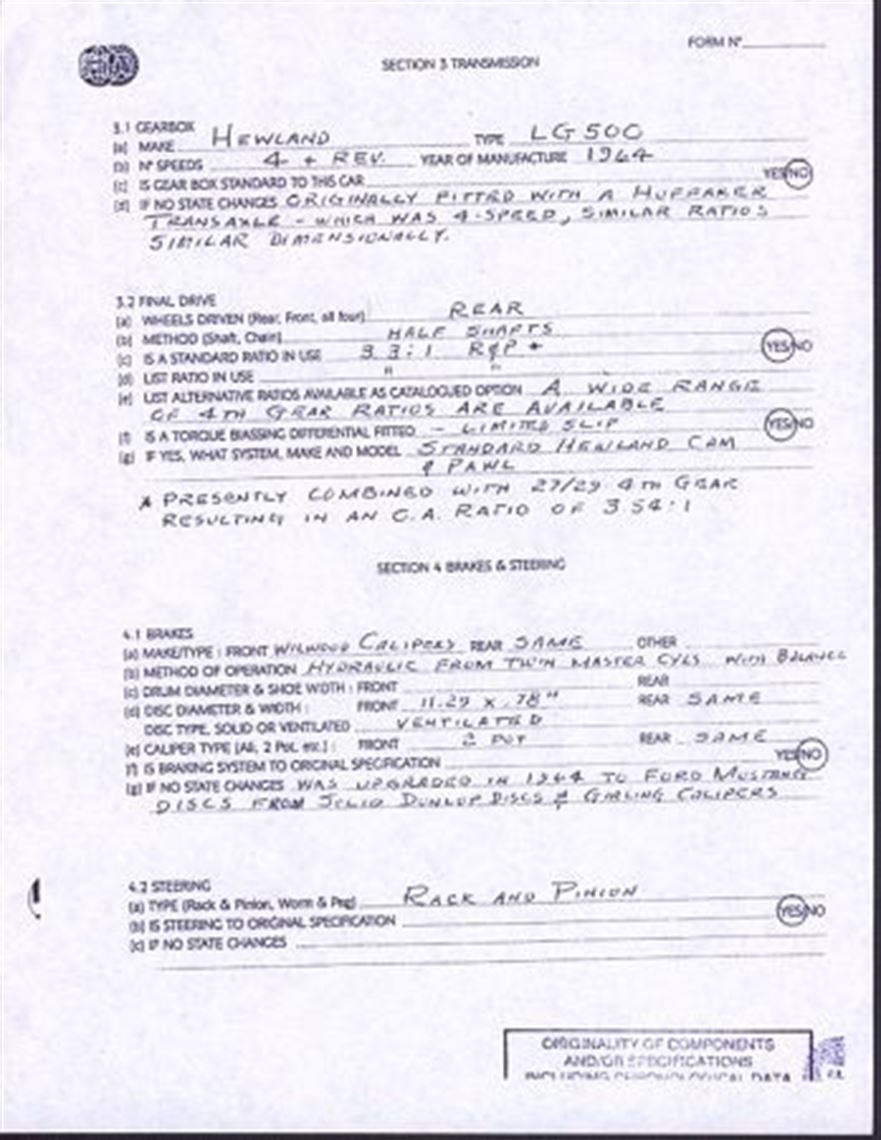 FORM Nº
FIA
SECTION 3 TRANSMISSION
3.1 GEARBOX
(a) MAKE HEWLAND TYPE LG500
(b) Nº SPEEDS 4 + REV. YEAR OF MANUFACTURE 1964
(c) IS GEAR BOX STANDARD TO THIS CAR YES/NO
(d) IF NO STATE CHANGES ORIGINALLY FITTED WITH A HUFFAKER
TRANSAXLE - WHICH WAS 4-SPEED, SIMILAR RATIOS
SIMILAR DIMENSIONALLY.
3.2 FINAL DRIVE
(a) WHEELS DRIVEN (Rear, Front, all four) REAR
(b) METHOD (Shaft, Chain) HALF SHAFTS
(c) IS A STANDARD RATIO IN USE 3 3:1 R&P * YES/NO
(d) LIST RATIO IN USE " "
(e) LIST ALTERNATIVE RATIOS AVAILABLE AS CATALOGUED OPTION A WIDE RANGE
OF 4TH GEAR RATIOS ARE AVAILABLE
(f) IS A TORQUE BIASSING DIFFERENTIAL FITTED - LIMITED SLIP YES/NO
(g) IF YES, WHAT SYSTEM, MAKE AND MODEL STANDARD HEWLAND CAM
& PAWL
* PRESENTLY COMBINED WITH 27/29 4TH GEAR
RESULTING IN AN O.A. RATIO OF 3 54:1
SECTION 4 BRAKES & STEERING
4.1 BRAKES
(a) MAKE/TYPE : FRONT WILWOOD CALIPERS REAR SAME OTHER
(b) METHOD OF OPERATION HYDRAULIC FROM TWIN MASTER CYLS WITH BALANCE
(c) DRUM DIAMETER & SHOE WIDTH : FRONT REAR
(d) DISC DIAMETER & WIDTH : FRONT 11.29 x .78" REAR SAME
DISC TYPE, SOLID OR VENTILATED VENTILATED
(e) CALIPER TYPE (All, 2 Pot, etc.) : FRONT 2 POT REAR SAME
(f) IS BRAKING SYSTEM TO ORIGINAL SPECIFICATION YES/NO
(g) IF NO STATE CHANGES WAS UPGRADED IN 1964 TO FORD MUSTANG
DISCS FROM SOLID DUNLOP DISCS & GIRLING CALIPERS
4.2 STEERING
(a) TYPE (Rack & Pinion, Worm & Peg) RACK AND PINION
(b) IS STEERING TO ORIGINAL SPECIFICATION YES/NO
(c) IF NO STATE CHANGES
ORIGINALITY OF COMPONENTS
AND/OR SPECIFICATIONS
INCLUDING CHRONOLOGICAL DATA